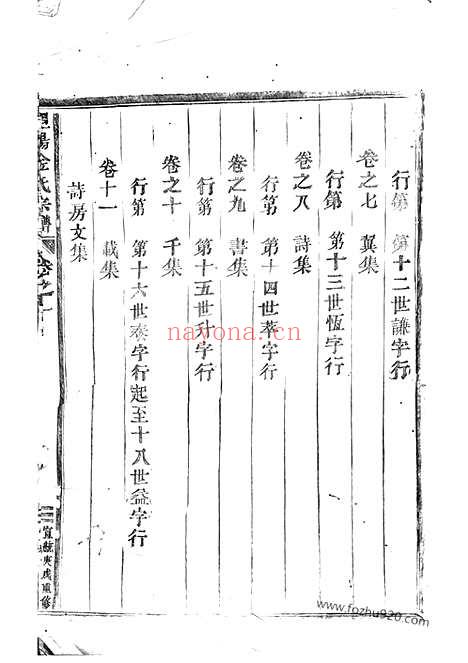 行第 第十二世謙字行
卷之七 翼集
行第 第十三世恆字行
卷之八 詩集
行第 第十四世萃字行
卷之九 書集
行第 第十五世升字行
卷之十 千集
行第 第十六世泰字行起至十八世益字行
卷十一 載集
詩房文集
陽金氏宗譜
宣統庚戌重修
nayona.cn
www.fozhu920.com